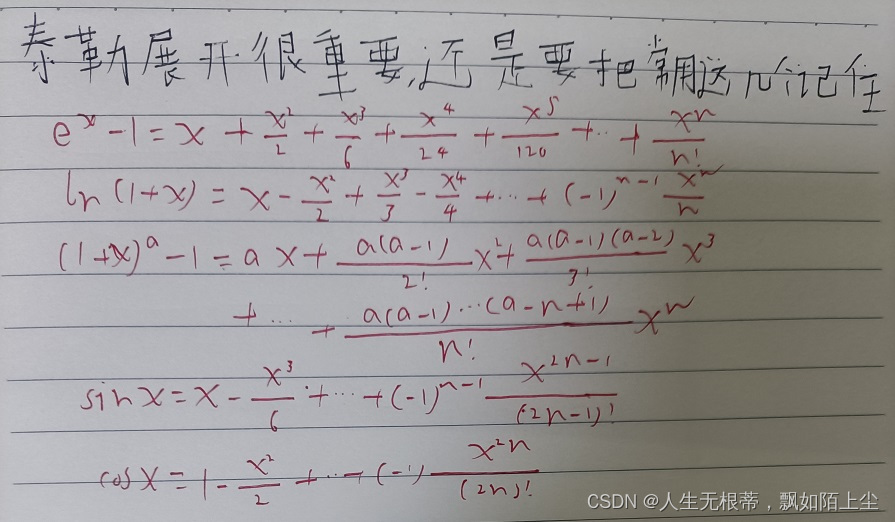 泰勒展开很重要,还是要把常用这几个记住
e^x - 1 = x + x²/2 + x³/6 + x⁴/24 + x⁵/120 + ... + x^n/n!
ln(1+x) = x - x²/2 + x³/3 - x⁴/4 + ... + (-1)^(n-1) x^n/n
(1+x)^a - 1 = a x + a(a-1)/2! x² + a(a-1)(a-2)/3! x³
+ ... + a(a-1)...(a-n+1)/n! x^n
sin x = x - x³/6 + ... + (-1)^(n-1) x^(2n-1)/(2n-1)!
cos x = 1 - x²/2 + ... + (-1) x^(2n)/(2n)!
CSDN @人生无根蒂,飘如陌上尘